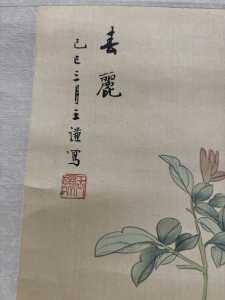 春麗
己巳三月王謹寫